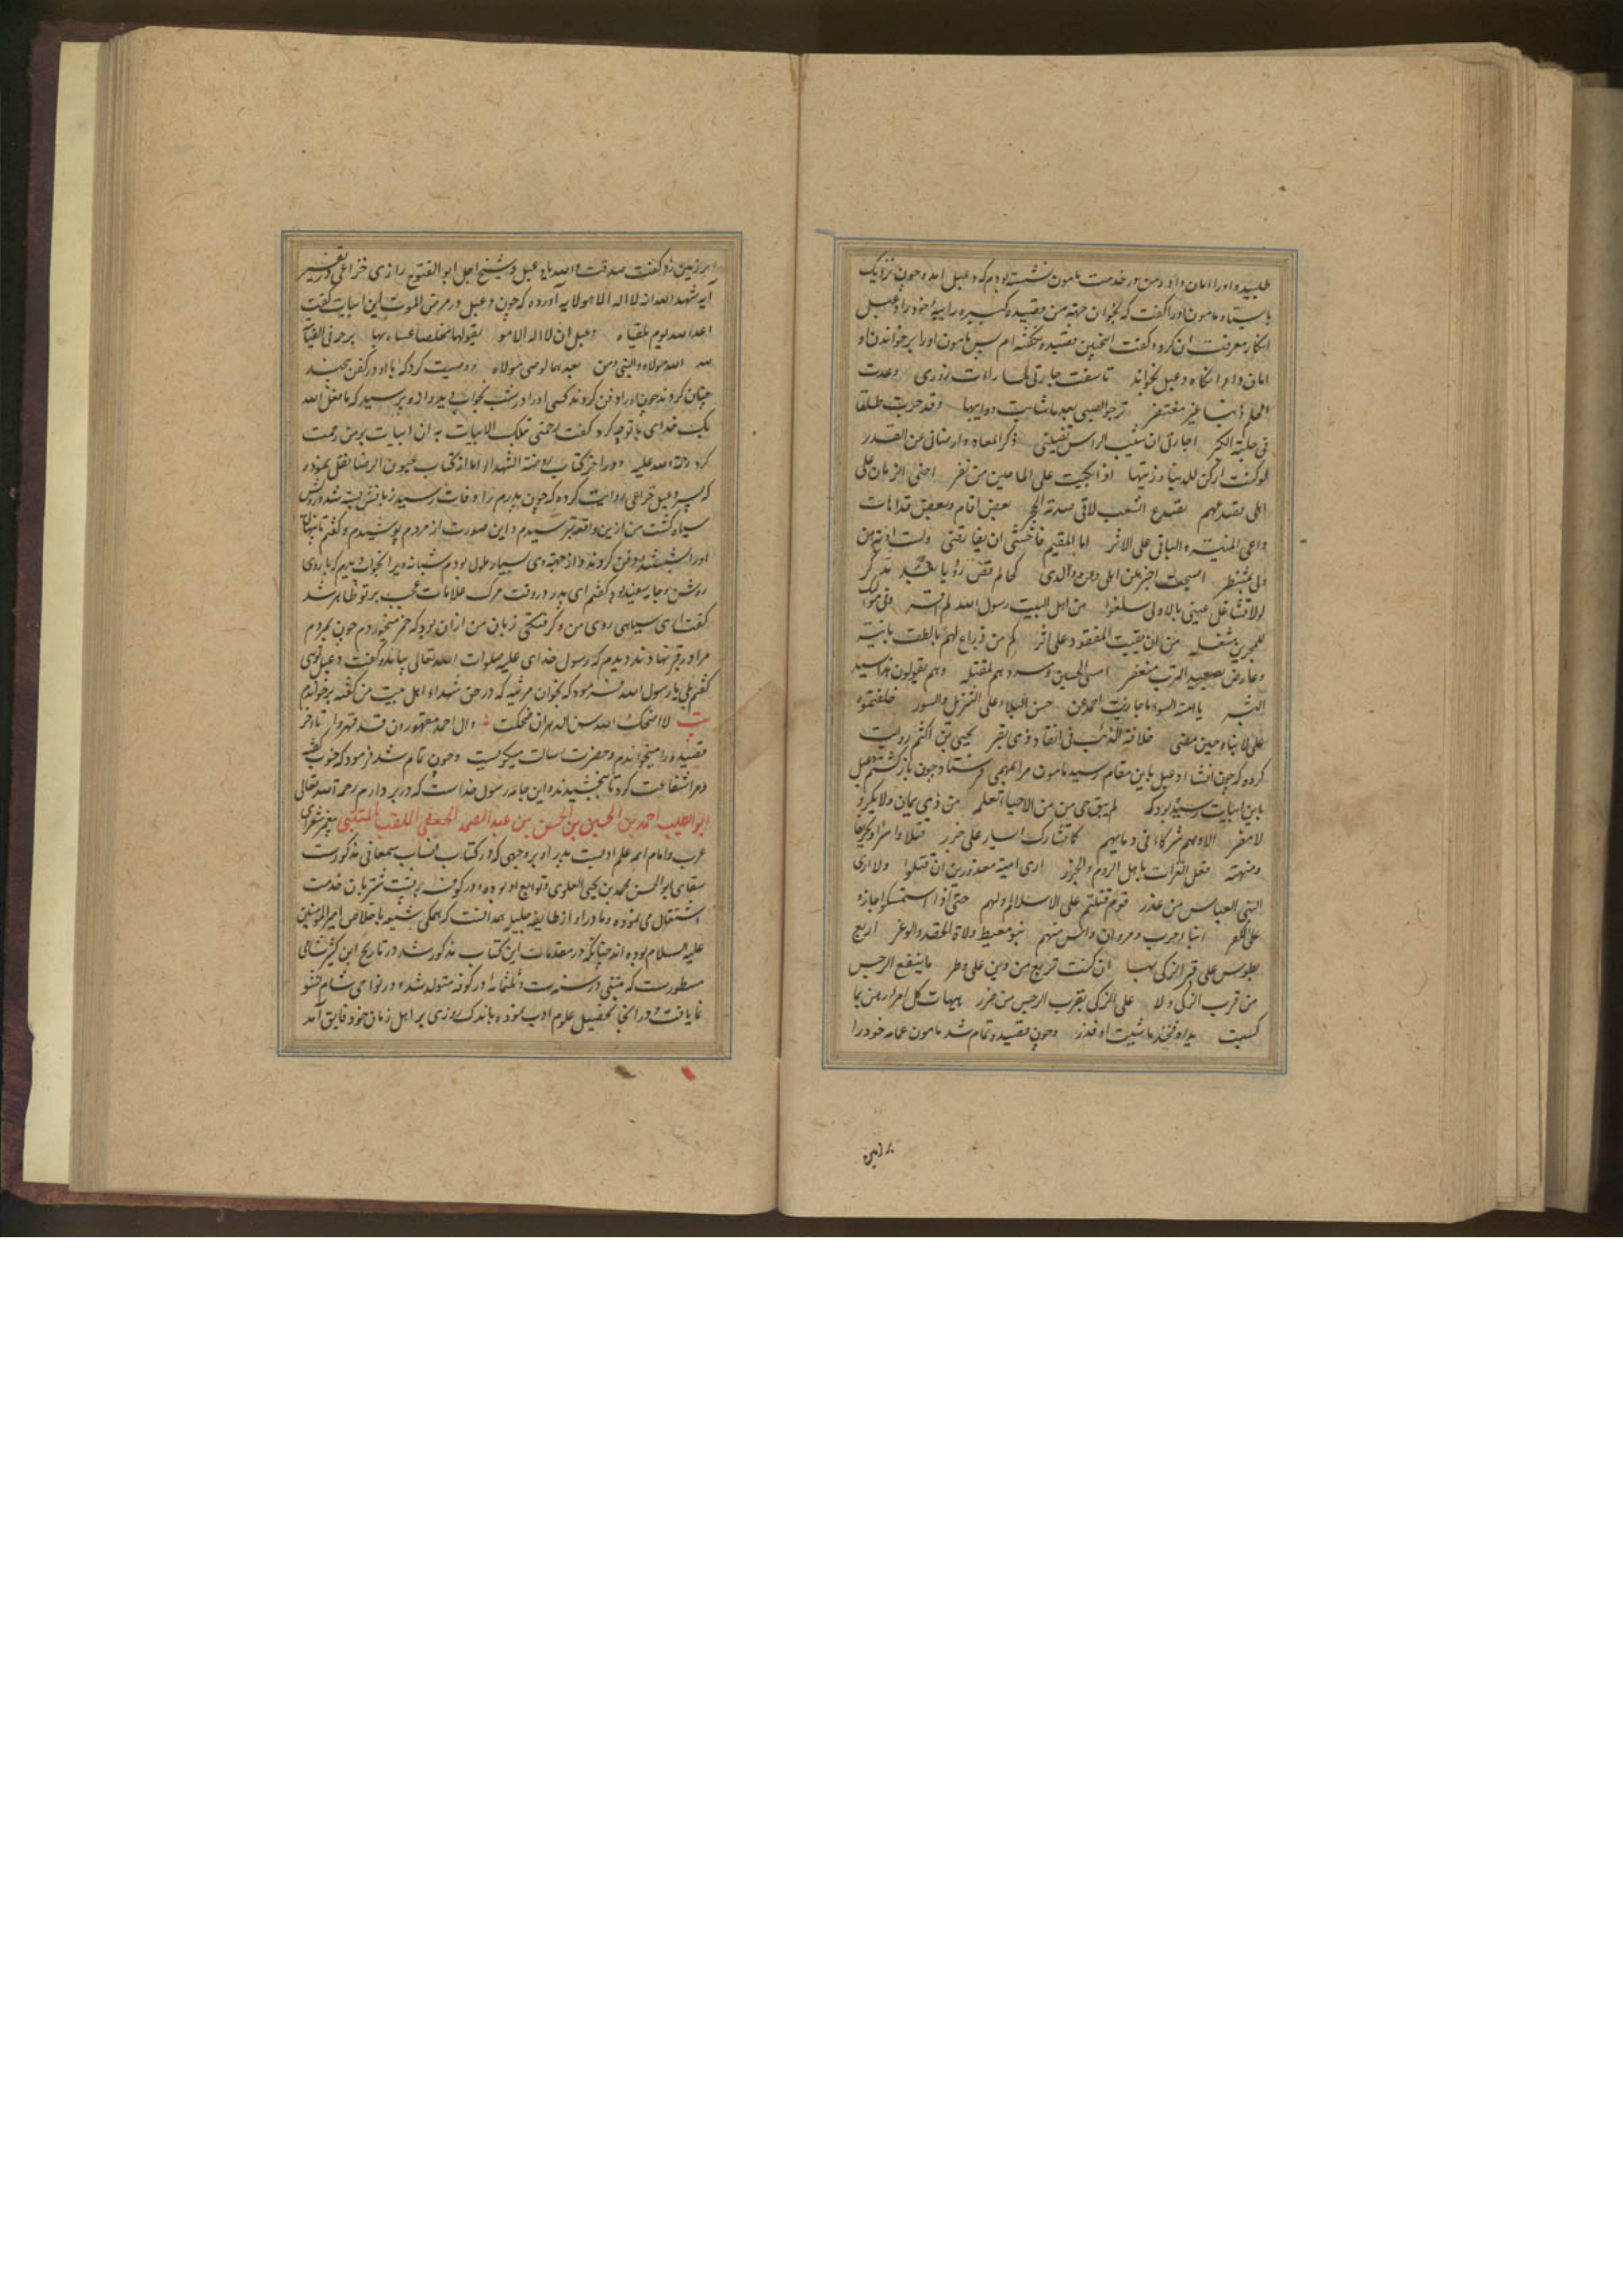 طلبید و او را امان داد و من در خدمت مامون نشسته بودم که دعبل امد و چون نزدیک
بایستاد مامون او را گفت که بخوان جهة من قصیده کبیره رائیهٔ خود را دعبل
انکار معرفت ان کرد و گفت اینچنین قصیده نگفته ام پس مامون او را بر خواندن او
امان داد انکاه دعبل بخواند تاسفت جارتی لما رات زوری وعدت
الحلم ذنبا غیر مغتفر ترجو الصبی بعد ما شابت ذوایبها وقد جرت طلقا
فی حلبة الکبر اجارتی ان شیب الراس ذکر المعاد وارضانی عن القدر
لو کنت ارکن للدنیا وزینتها اذا بکیت علی الماضین من نفر اخنی الزمان علی
اهلی فصدعهم تصدع الشعب لاقی صدمة الحجر بعض اقام وبعض قد اهات
داعی المنیة والباقی علی الاثر اما المقیم فاخشی ان یفارقنی ولست اوبة من
ولی بمنتظر اصبحت اخبر عن اهلی وعن ولدی کحالم قص رؤیا بعد مدکر
لولا تشاغل عینی بالاولی سلفوا من اهل البیت رسول الله لم اقر وفی موالیک
للمحزین مشغلة من ان یقیت المفقود علی اثر کم من ذراع لهم بالطف بائنة
وعارض بصعید الترب منعفر امسی الحسین ومسراهم لمقتله وهم یقولون هذا سید
البشر یا امة السوء ما جازیت احمد عن حسن البلاء علی التنزیل والسور خلفتموه
علی الابناء حین مضی خلافة الذئب فی انقاد ذی بقر یحیی بن اکثم روایت
کرده که چون انشاد دعبل باین مقام رسید مامون مرا بمهمی فرستاد چون بازگشتم دعبل
باین ابیات رسیده بود که لم یبق حی من الاحیاء نعلمه من ذی یمان ولا بکر و
لا مضر الا وهم شرکاء فی دمایهم کما تشارک ایسار علی جزر قتلا واسرا وتحریقا
ومنهبة فعل الغزات باهل الروم والخزر اری امیة معذورین ان قتلوا ولا اری
لبنی العباس من عذر قوم قتلتم علی الاسلام اولهم حتی اذا استمکنوا جازوا
علی الکفر ابناء حرب ومروان واسرتهم بنو معیط ولاة الحقد والوغر اربع
بطوس علی قبر الزکی بها ان کنت تربع من دین علی وطر ما ینفع الرجس
من قرب الزکی ولا علی الزکی بقرب الرجس من ضرر هیهات کل امرء رهن بما
کسبت یداه فخذ ما شئت او فذر وچون قصیده تمام شد مامون عمامه خود را
بر زمین
بر زمین زد و گفت صدقت والله یا دعبل وشیخ اجل ابو الفتوح رازی خزاعی در تفسیر
آیه شهد الله انه لا اله الا هو آورده که چون دعبل در مرض الموت این ابیات گفت
اعد لله یوم یلقاه دعبل ان لا اله الا هو یقولها مخلصا عساه بها یرحمه فی القیامة
الله الله مولاه والنبی ومن بعدهما الوصی مولاه و وصیت کرد که با او در کفن نهند
چنان کردند چون او را دفن کردند کسی او را در شب بخواب دید و از او پرسید که ما فعل الله
بک خدای با تو چه کرد گفت رحمنی بتلک الابیات به ان ابیات بر من رحمت
کرد رحمة الله علیه و در اخر کتاب روضة الشهداء اما از کتاب عیون الرضا نقل نموده
که پسر دعبل خزاعی روایت کرده که چون پدرم را وفات رسید زبانش بسته شد و رویش
سیاه گشت من ازین واقعه بترسیدم و این صورت از مردم پوشیدم و گفتم تا پنهان
او را شستند و دفن کردند و از جهة وی بسیار ملول بودم شبانه ویرا بخواب دیدم که با روی
روشن و جامه سفید بود گفتم ای پدر در وقت مرگ علامات عجیب بر تو ظاهر شد
گفت ای سیاهی روی من و گرفتگی زبان من از ان بود که خمر میخوردم چون بمردم
مرا در قبر نهادند دیدم که رسول خدای علیه صلوات الله تعالی بیامد و گفت دعبل توئی
گفتم بلی یا رسول الله فرمود که بخوان مرثیه که در حق شهداء اهل بیت من گفته بر خواندم
بیت لا اضحک الله سن الدهر ان ضحکت و ال احمد مقهورون قد قهروا تا اخر
قصیده را میخواندم و حضرت رسالت میگریست وچون تمام شد فرمود که خوب گفتی
و مرا شفاعت کرد تا ببخشیدند و این جامه رسول خداست که در بر دارم رحمه الله تعالی
ابو الطیب احمد بن الحسین بن الحسن بن عبد الصمد الجعفی الملقب بالمتنبی پیغمبر شعرای
عرب و امام ائمه علم ادبست پدر او بر وجهی که در کتاب انساب سمعانی مذکورست
سقای ابو الحسن محمد بن یحیی العلوی و توابع او بوده و در کوفه بر پشت شتر بان خدمت
اشتغال می نموده و مادر او از طایفه جلیله همدانست که همکی شیعه با خلاص امیر المومنین
علیه السلام بوده اند چنانکه در مقدمات این کتاب مذکور شد در تاریخ ابن کثیر شامی
مسطورست که متنبی در سنه ست و ثلثمائه در کوفه متولد شد و در نواحی شام نشو
نما یافت و در انجا تحصیل علوم ادب نموده باندک روزی بر اهل زمان خود فایق آمد